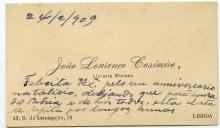 24/2/909
João Lourenço Casimiro,
Livraria Moraes
Felicita V. Ex. pelo seu anniversario
natalicio, desejando que para honra
da Patria e de seus
se repita por longos annos
49, R. da Assumpção, 51
LISBOA